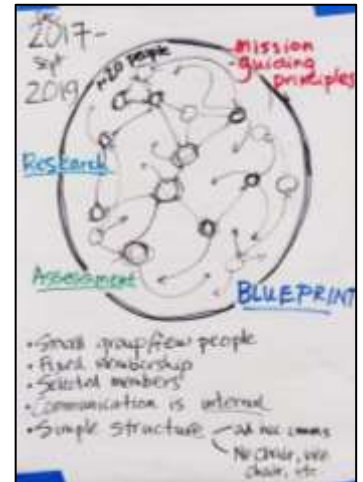 2017-
Sept
2019
~20 people
mission
guiding
principles
Research
Assessment
BLUEPRINT
• Small group/few people
• Fixed membership
• Selected members
• Communication is internal
• Simple structure - ad hoc comms
No chair, vice
chair, etc.